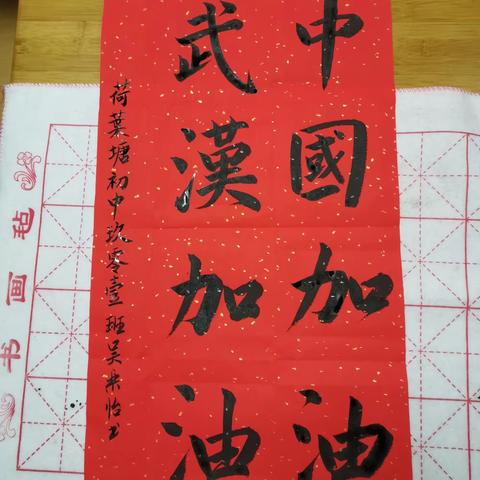 中國加油
武漢加油
荷葉塘初中玖零壹班吴米怡书
书画毡